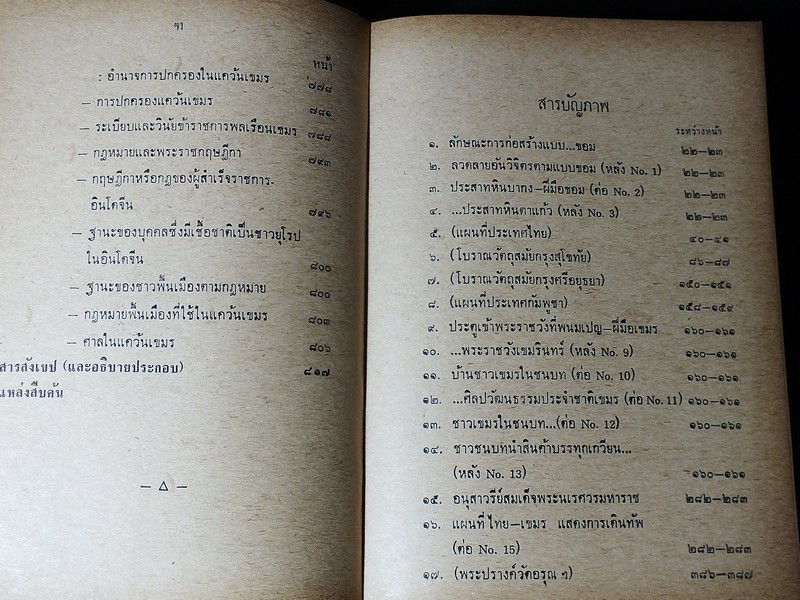 ๆ
หน้า
: อำนาจการปกครองในแคว้นเขมร ๗๗๘
— การปกครองแคว้นเขมร ๗๘๑
— ระเบียบและวินัยข้าราชการพลเรือนเขมร ๗๘๘
— กฎหมายและพระราชกฤษฎีกา ๗๙๓
— กฤษฎีกาหรือกฎของผู้สำเร็จราชการ-
อินโดจีน ๗๙๖
— ฐานะของบุคคลซึ่งมีเชื้อชาติเป็นชาวยุโรป
ในอินโดจีน ๘๐๐
— ฐานะของชาวพื้นเมืองตามกฎหมาย ๘๐๐
— กฎหมายพื้นเมืองที่ใช้ในแคว้นเขมร ๘๐๓
— ศาลในแคว้นเขมร ๘๐๖
สารสังเขป (และอธิบายประกอบ) ๘๑๗
แหล่งสืบค้น
— △ —
สารบัญภาพ
ระหว่างหน้า
๑. ลักษณะการก่อสร้างแบบ...ขอม ๒๒—๒๓
๒. ลวดลายอันวิจิตรตามแบบขอม (หลัง No. 1) ๒๒—๒๓
๓. ประสาทหินบากง—ฝีมือขอม (ต่อ No. 2) ๒๒—๒๓
๔. ...ประสาทหินตาแก้ว (หลัง No. 3) ๒๒—๒๓
๕. (แผนที่ประเทศไทย) ๔๐—๔๑
๖. (โบราณวัตถุสมัยกรุงสุโขทัย) ๘๖—๘๗
๗. (โบราณวัตถุสมัยกรุงศรีอยุธยา) ๑๕๐—๑๕๑
๘. (แผนที่ประเทศกัมพูชา) ๑๕๘—๑๕๙
๙. ประตูเข้าพระราชวังที่พนมเปญ—ฝีมือเขมร ๑๖๐—๑๖๑
๑๐. ...พระราชวังเขมรินทร์ (หลัง No. 9) ๑๖๐—๑๖๑
๑๑. บ้านชาวเขมรในชนบท (ต่อ No. 10) ๑๖๐—๑๖๑
๑๒. ...ศิลปวัฒนธรรมประจำชาติเขมร (ต่อ No. 11) ๑๖๐—๑๖๑
๑๓. ชาวเขมรในชนบท...(ต่อ No. 12) ๑๖๐—๑๖๑
๑๔. ชาวชนบทนำสินค้าบรรทุกเกวียน...
(หลัง No. 13) ๑๖๐—๑๖๑
๑๕. อนุสาวรีย์สมเด็จพระนเรศวรมหาราช ๒๘๒—๒๘๓
๑๖. แผนที่ ไทย—เขมร แสดงการเดินทัพ
(ต่อ No. 15) ๒๘๒—๒๘๓
๑๗. (พระปรางค์วัดอรุณ ฯ) ๓๘๖—๓๘๗